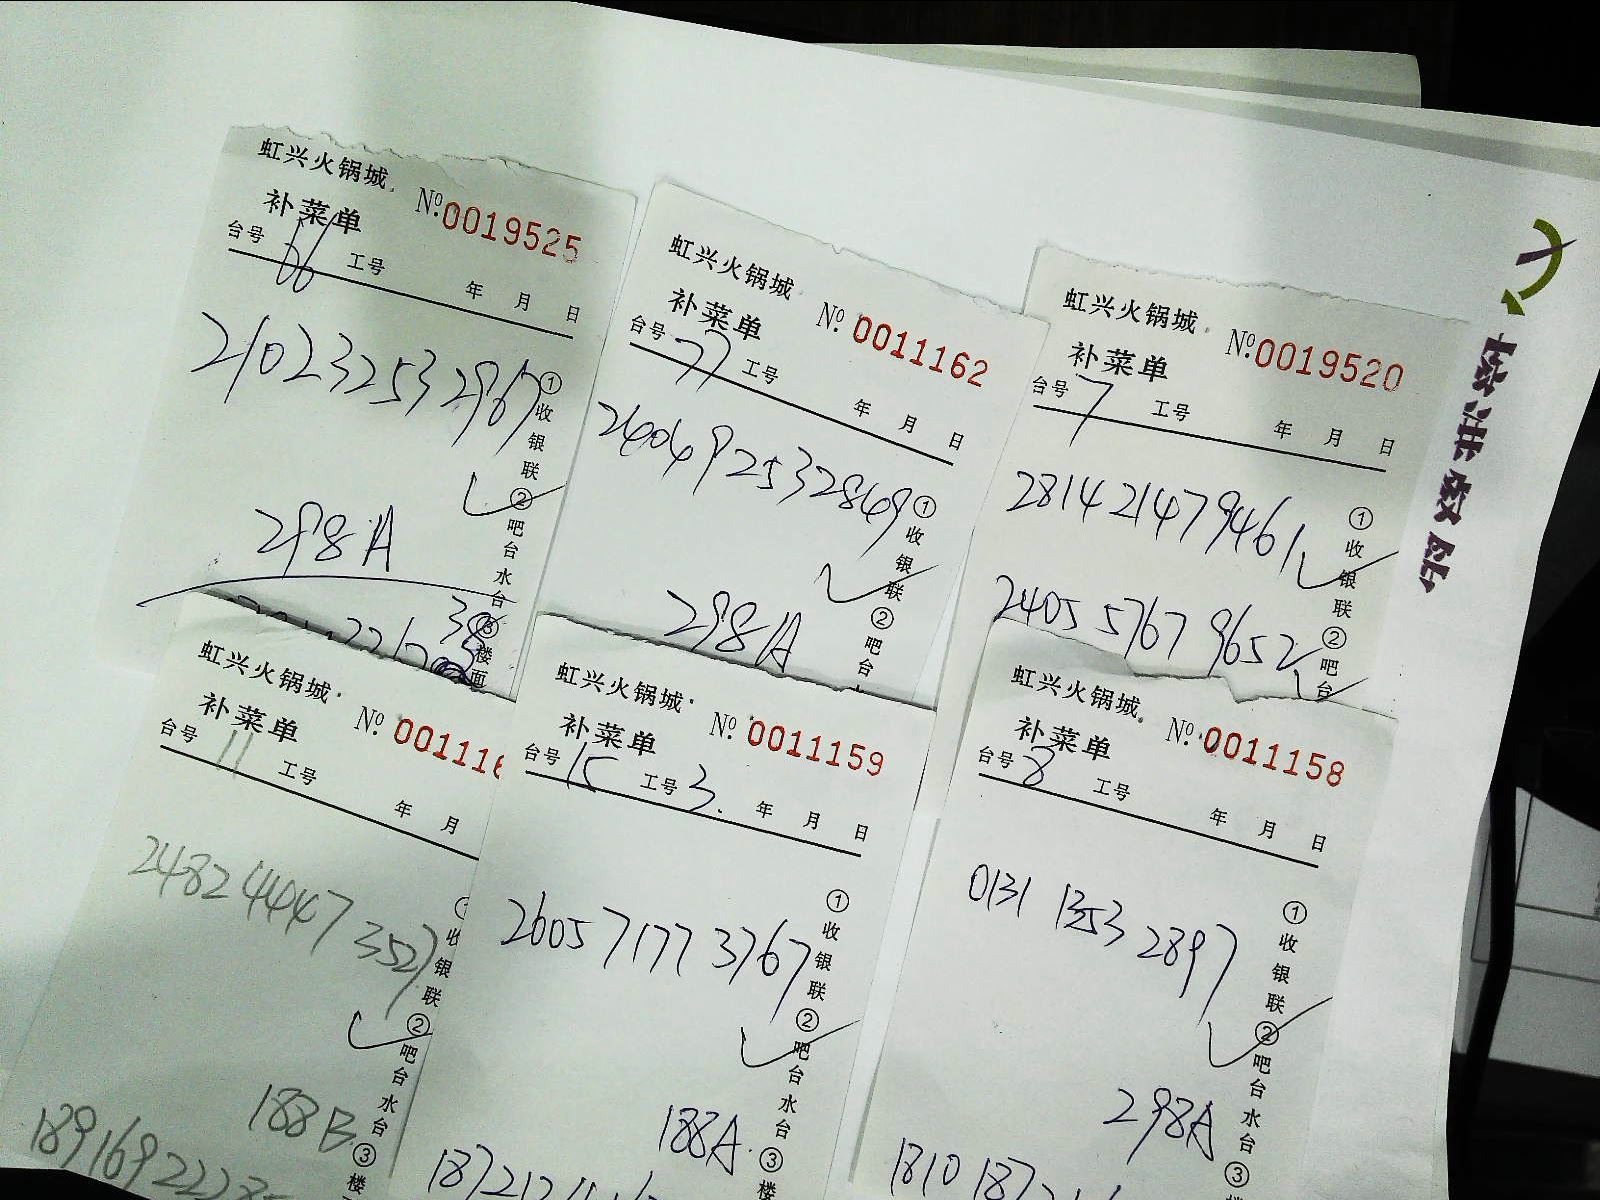 虹兴火锅城
补菜单 №.0019525
台号 06 工号 年 月 日
210232532967
298A
①收银联 ②吧台水台 ③楼面
虹兴火锅城
补菜单 №. 0011162
台号 77 工号 年 月 日
240492532849
298A
①收银联 ②吧台
虹兴火锅城
补菜单 №.0019520
台号 7 工号 年 月 日
281421479461
240557679652
①收银联 ②吧台
虹兴火锅城
补菜单 №. 001116
台号 11 工号 年 月
248244473527
188B
①收银联 ②吧台水台 ③楼
虹兴火锅城
补菜单 №. 0011159
台号 15 工号 3. 年 月 日
260571773767
188A.
①收银联 ②吧台水台 ③楼
虹兴火锅城
补菜单 №. 0011158
台号 8 工号 年 月 日
0131 1353 2897
298A
①收银联 ②吧台水台 ③